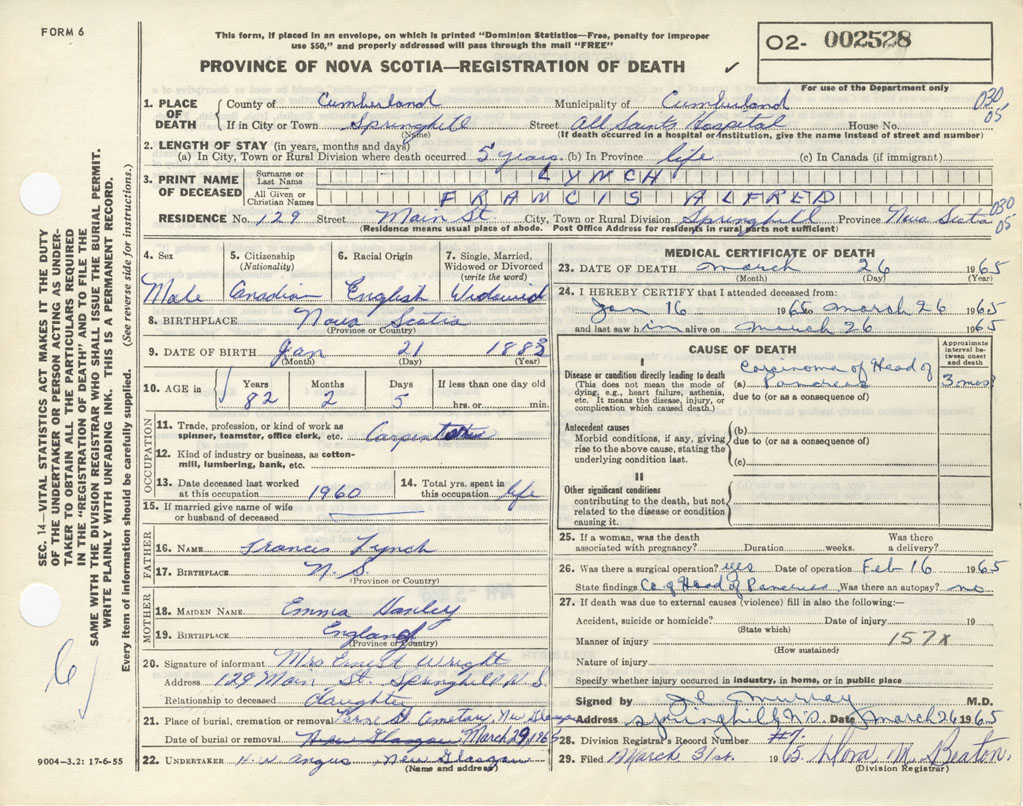 FORM 6
This form, if placed in an envelope, on which is printed "Dominion Statistics—Free, penalty for improper
use $50," and properly addressed will pass through the mail "FREE"
PROVINCE OF NOVA SCOTIA—REGISTRATION OF DEATH ✓
02- 002528
For use of the Department only
1. PLACE OF DEATH { County of Cumberland Municipality of Cumberland 030
If in City or Town Springhill Street All Saints Hospital House No. 05
(Name) (If death occurred in a hospital or institution, give the name instead of street and number)
2. LENGTH OF STAY (in years, months and days)
(a) In City, Town or Rural Division where death occurred 5 years (b) In Province life (c) In Canada (if immigrant)
3. PRINT NAME OF DECEASED { Surname or Last Name LYNCH
All Given or Christian Names FRANCIS ALFRED
RESIDENCE No. 129 Street Main St. City, Town or Rural Division Springhill Province Nova Scotia 030 05
(Residence means usual place of abode. Post Office Address for residents in rural parts not sufficient)
4. Sex 5. Citizenship (Nationality) 6. Racial Origin 7. Single, Married, Widowed or Divorced (write the word)
Male Canadian English Widowed
8. BIRTHPLACE Nova Scotia
(Province or Country)
9. DATE OF BIRTH Jan 21 1883
(Month) (Day) (Year)
10. AGE in Years Months Days If less than one day old
82 2 5 hrs. or min.
OCCUPATION
11. Trade, profession, or kind of work as
spinner, teamster, office clerk, etc. Carpenter
12. Kind of industry or business, as cotton-
mill, lumbering, bank, etc.
13. Date deceased last worked at this occupation 1960 14. Total yrs. spent in this occupation life
15. If married give name of wife
or husband of deceased
FATHER
16. NAME Francis Lynch
17. BIRTHPLACE N.S.
(Province or Country)
MOTHER
18. MAIDEN NAME Emma Hanley
19. BIRTHPLACE England
(Province or Country)
20. Signature of informant Mrs Ernest Wright
Address 129 Main St. Springhill N.S
Relationship to deceased daughter
21. Place of burial, cremation or removal St. Cemetary, New Glasgow
Date of burial or removal New Glasgow March 29, 1965
22. UNDERTAKER H.W. Angus New Glasgow
(Name and address)
MEDICAL CERTIFICATE OF DEATH
23. DATE OF DEATH March 26 1965
(Month) (Day) (Year)
24. I HEREBY CERTIFY that I attended deceased from:
Jan 16 1965 to March 26 1965
and last saw him alive on March 26 1965
CAUSE OF DEATH
Approximate interval between onset and death
I
Disease or condition directly leading to death
(This does not mean the mode of dying, e.g., heart failure, asthenia, etc. It means the disease, injury, or complication which caused death.)
(a) Carcinoma of Head of Pancreas 3 mos
due to (or as a consequence of)
Antecedent causes
Morbid conditions, if any, giving rise to the above cause, stating the underlying condition last.
(b)
due to (or as a consequence of)
(c)
II
Other significant conditions
contributing to the death, but not related to the disease or condition causing it.
25. If a woman, was the death associated with pregnancy? Duration weeks. Was there a delivery?
26. Was there a surgical operation? yes Date of operation Feb 16 1965
State findings Ca of Head of Pancreas Was there an autopsy? no
27. If death was due to external causes (violence) fill in also the following:—
Accident, suicide or homicide? Date of injury 19
(State which)
Manner of injury 157X
(How sustained)
Nature of injury
Specify whether injury occurred in industry, in home, or in public place
Signed by J.C. Murray M.D.
Address Springhill N.S. Date March 26 1965
28. Division Registrar's Record Number #7.
29. Filed March 31st. 1965. Dora M. Beaton.
(Division Registrar)
SEC. 14—VITAL STATISTICS ACT MAKES IT THE DUTY
OF THE UNDERTAKER OR PERSON ACTING AS UNDER-
TAKER TO OBTAIN ALL THE PARTICULARS REQUIRED
IN THE "REGISTRATION OF DEATH" AND TO FILE THE
SAME WITH THE DIVISION REGISTRAR WHO SHALL ISSUE THE BURIAL PERMIT.
WRITE PLAINLY WITH UNFADING INK. THIS IS A PERMANENT RECORD.
Every item of information should be carefully supplied. (See reverse side for instructions.)
9004—3.2: 17-6-55